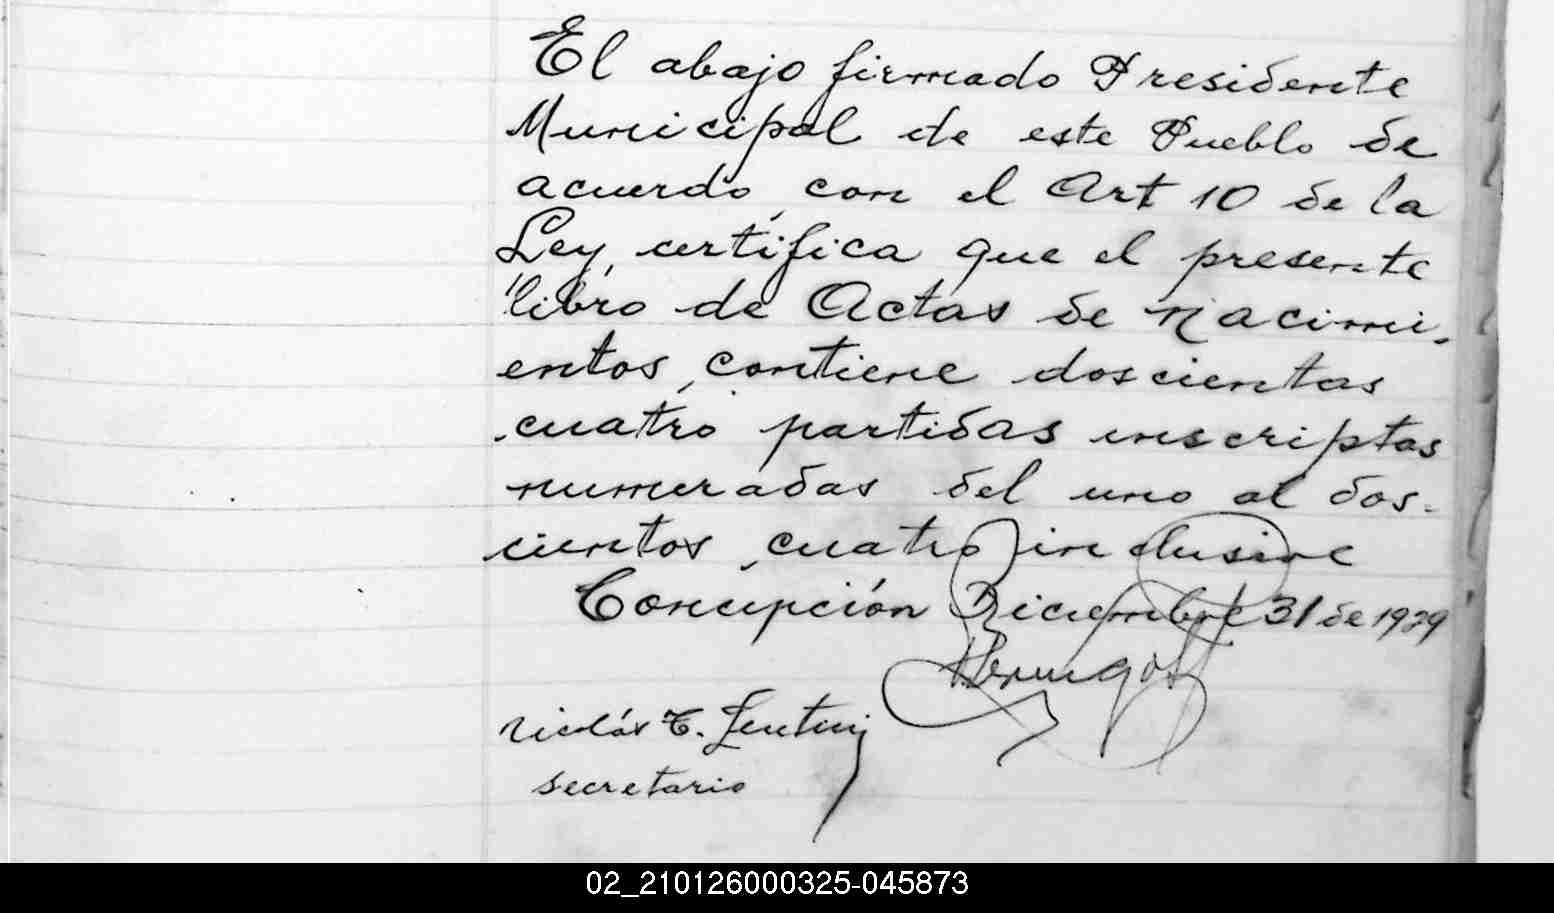 El abajo firmado Presidente
Municipal de este Pueblo de
acuerdo, con el Art 10 de la
Ley, certifica que el presente
libro de Actas de Nacimi-
entos, contiene doscientas
cuatro partidas inscriptas
numeradas del uno al dos-
cientos, cuatro inclusive
Concepción Diciembre 31 de 1929
Nicolás T.
secretario
02_210126000325-045873